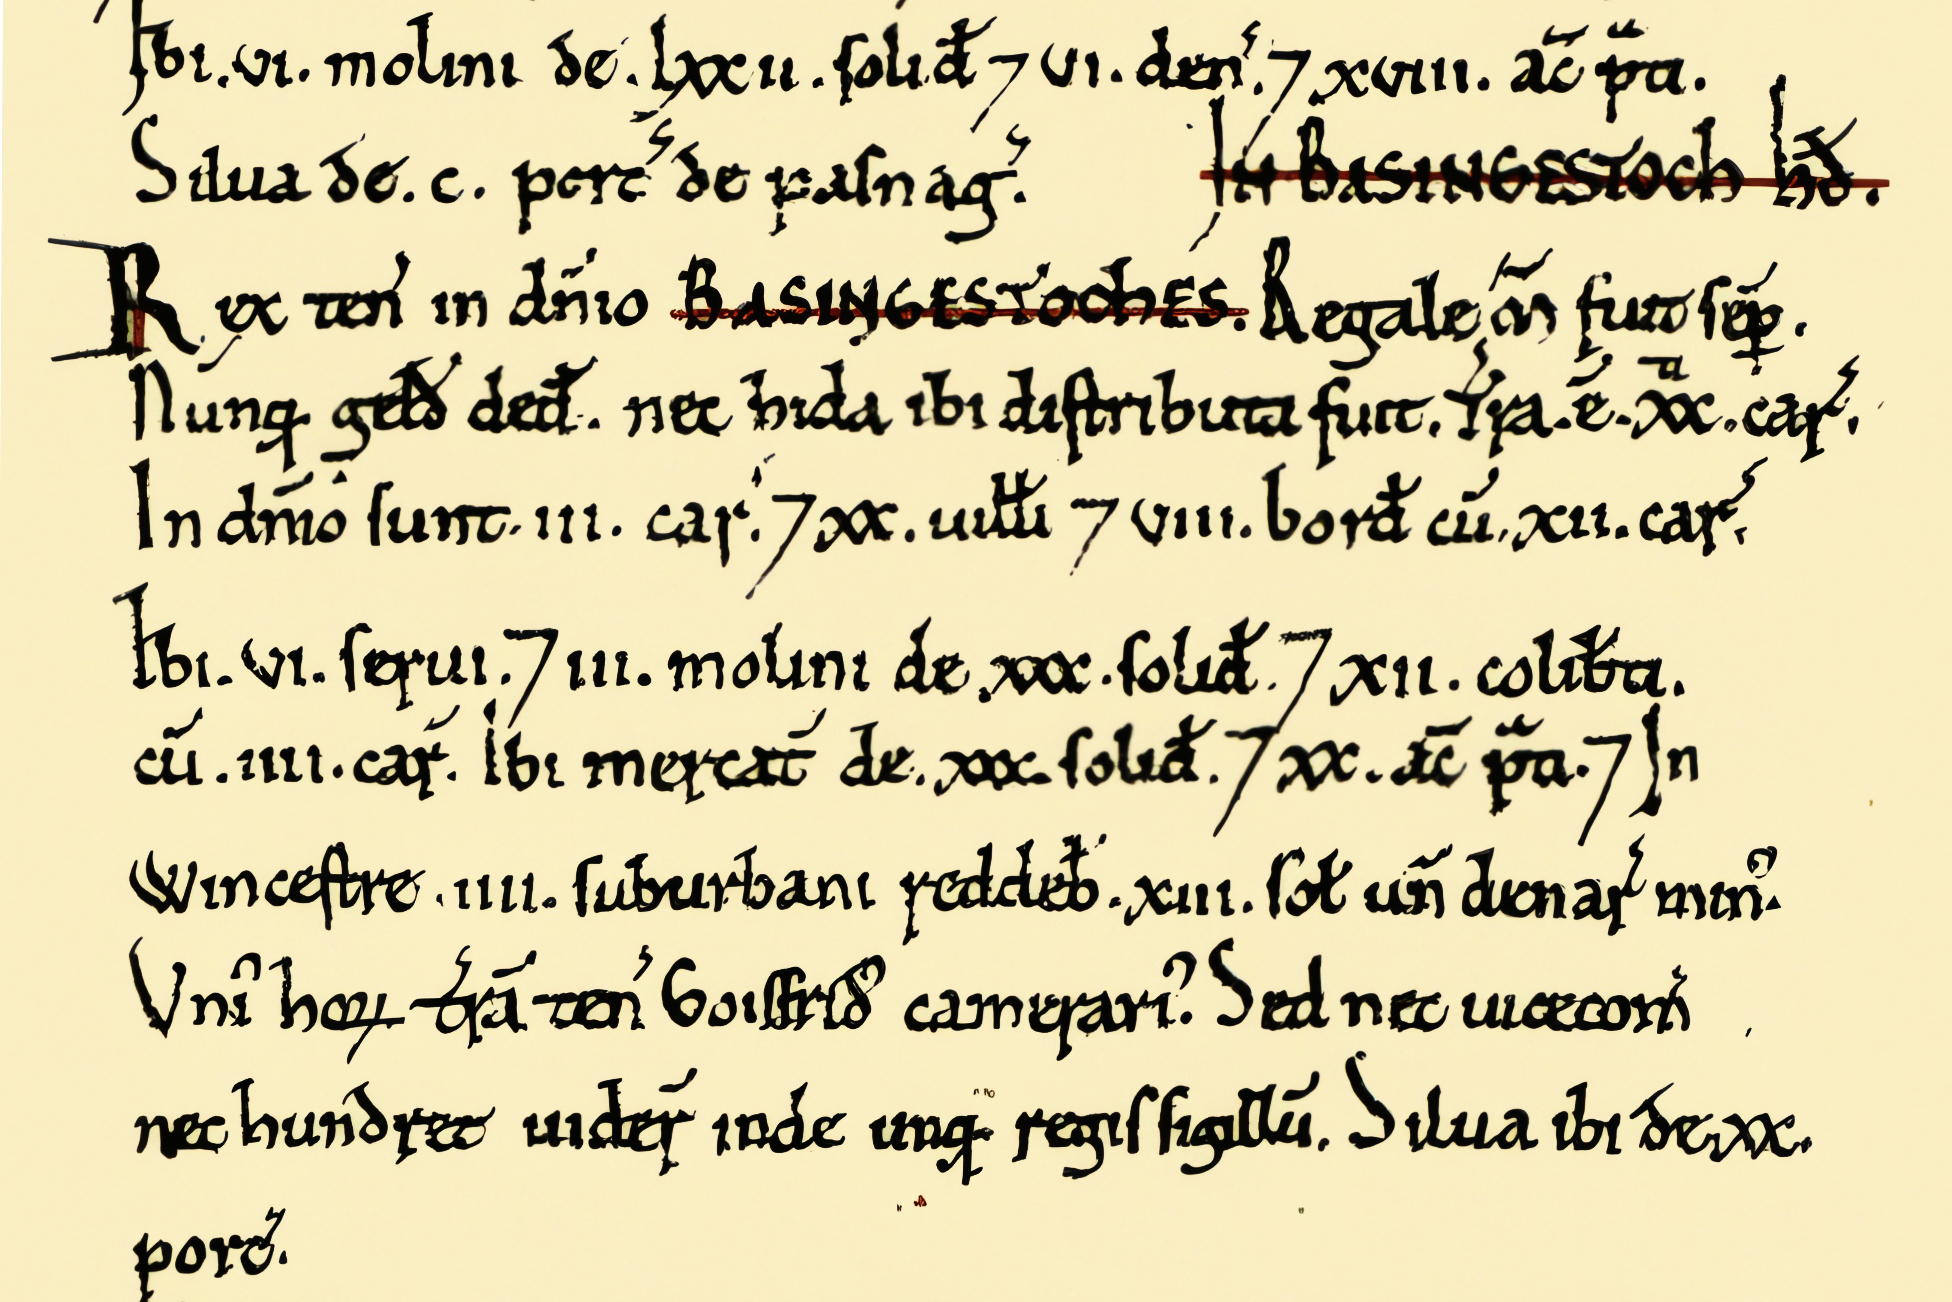 Ibi.vi. molini de.lxxii.solid̄ ⁊ vi. den̄.⁊ xviii. ac̄ p̄ti.
Silua de.c. porc̄ de pasnaḡ. In BASINGESTOCh hd̄.
Rex ten̄ in dn̄io BASINGESTOChES. Regale m̄ fuit sēp.
Nunq̄ geld̄ ded̄. nec hida ibi distributa fuit. Tr̄a.ē.xx.car̄.
In dn̄io sunt.iii. car̄.⁊ xx. uilli ⁊ viii. bord̄ cū.xii.car̄.
Ibi.vi. serui.⁊ iii. molini de xxx.solid̄.⁊ xii. colib̄ti.
cū.iiii.car̄. Ibi mercat̄ de.xxx.solid̄.⁊ xx. ac̄ p̄ti.⁊ In
Wincestre.iiii. suburbani reddeb̄.xiii.sol̄ un̄ denar̄ min᷒.
Vni᷒ hoꝝ tr̄ā ten̄ Goisfrid᷒ camerari᷒. Sed nec uicecom̄
nec hundret uider̄ inde unq̄ regis sigillū. Silua ibi de xx.
porc̄.